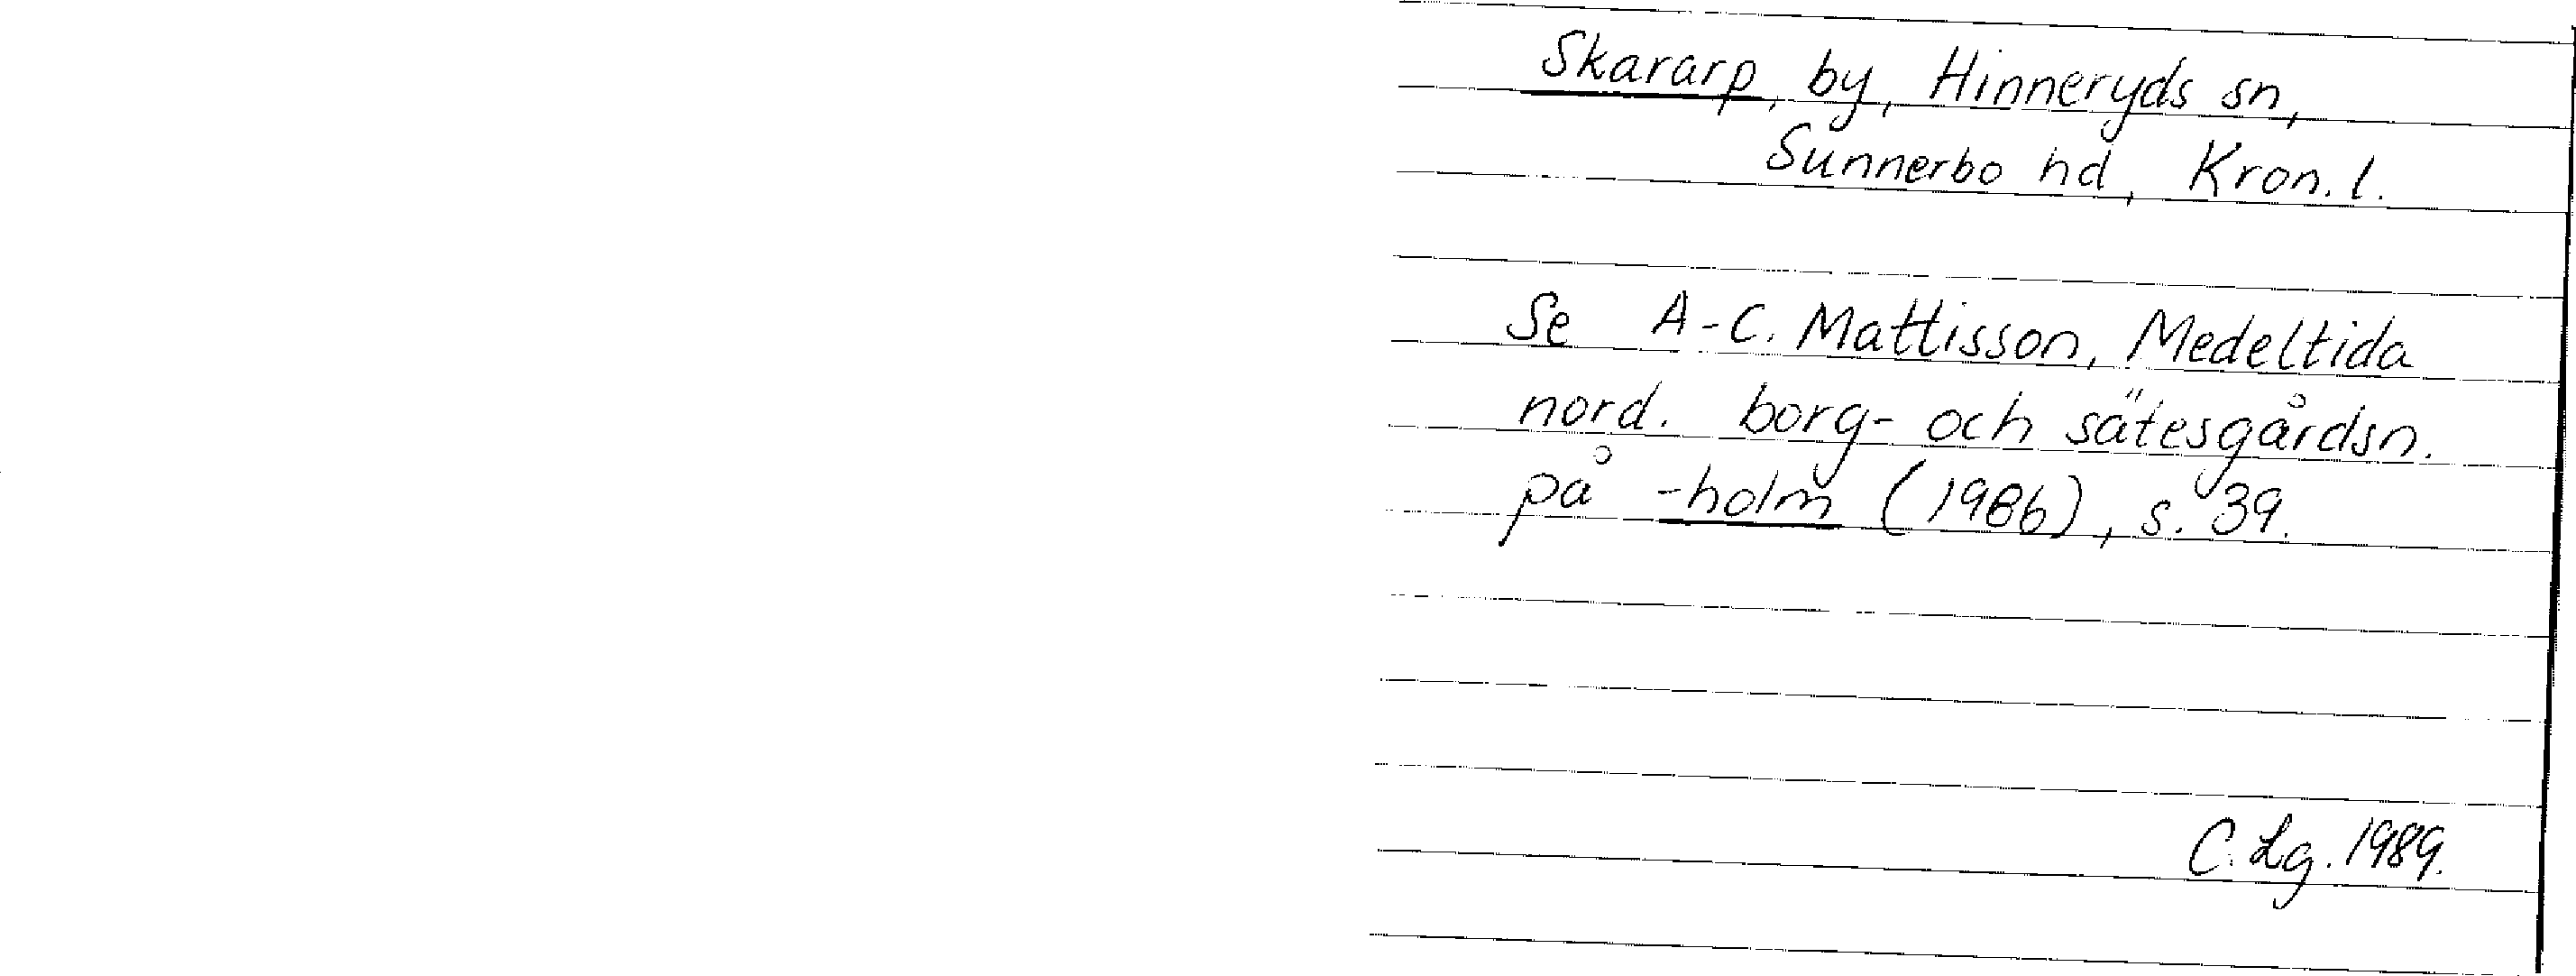 Skararp, by, Hinneryds sn,
Sunnerbo hd, Kron. l.
Se A-C. Mattisson, Medeltida
nord. borg- och sätesgårdsn.
på -holm (1986), s. 39.
C. Lg. 1989.